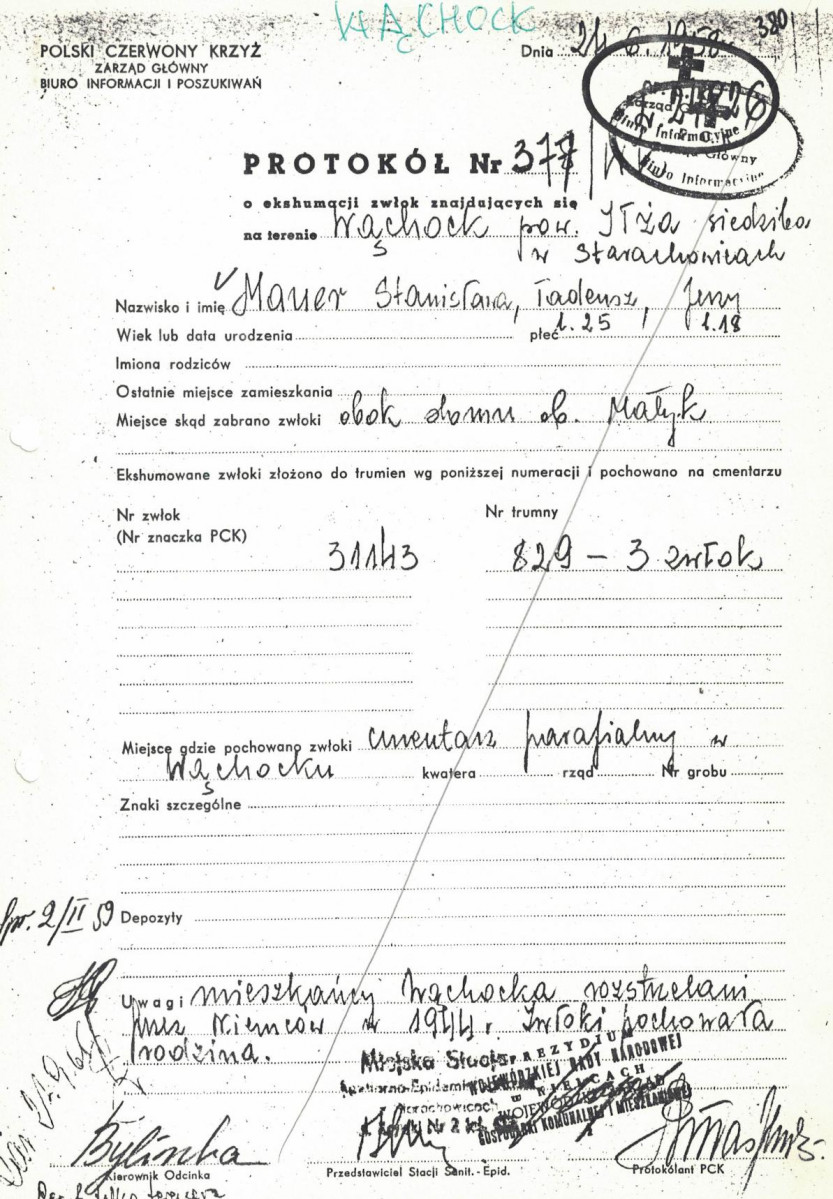 WĄCHOCK
380
POLSKI CZERWONY KRZYŻ
ZARZĄD GŁÓWNY
BIURO INFORMACJI I POSZUKIWAŃ
Dnia 24.6.1958
Zarząd Główny
Biuro Informacyjne
Główny
Biuro Informacyjne
PROTOKÓŁ Nr 377
o ekshumacji zwłok znajdujących się
na terenie Wąchock pow. Iłża siedziba
w Starachowicach
Nazwisko i imię Mauer Stanisława, Tadeusz, Jerzy
Wiek lub data urodzenia płeć l. 25 l. 18
Imiona rodziców
Ostatnie miejsce zamieszkania
Miejsce skąd zabrano zwłoki obok domu ob. Małyk
Ekshumowane zwłoki złożono do trumien wg poniższej numeracji i pochowano na cmentarzu
Nr zwłok
(Nr znaczka PCK)
Nr trumny
31143 829 – 3 zwłok
Miejsce gdzie pochowano zwłoki cmentarz parafialny w
Wąchocku kwatera rząd Nr grobu
Znaki szczególne
2/II 59
Depozyty
Uwagi mieszkańcy Wąchocka rozstrzelani
przez Niemców w 1944 r. Zwłoki pochowała
rodzina.
Miejska Stacja
PREZYDIUM
WOJEWÓDZKIEJ RADY NARODOWEJ
w KIELCACH
GOSPODARKI KOMUNALNEJ I MIESZKANIOWEJ
Bylinka
Kierownik Odcinka
Przedstawiciel Stacji Sanit. - Epid.
Protokólant PCK